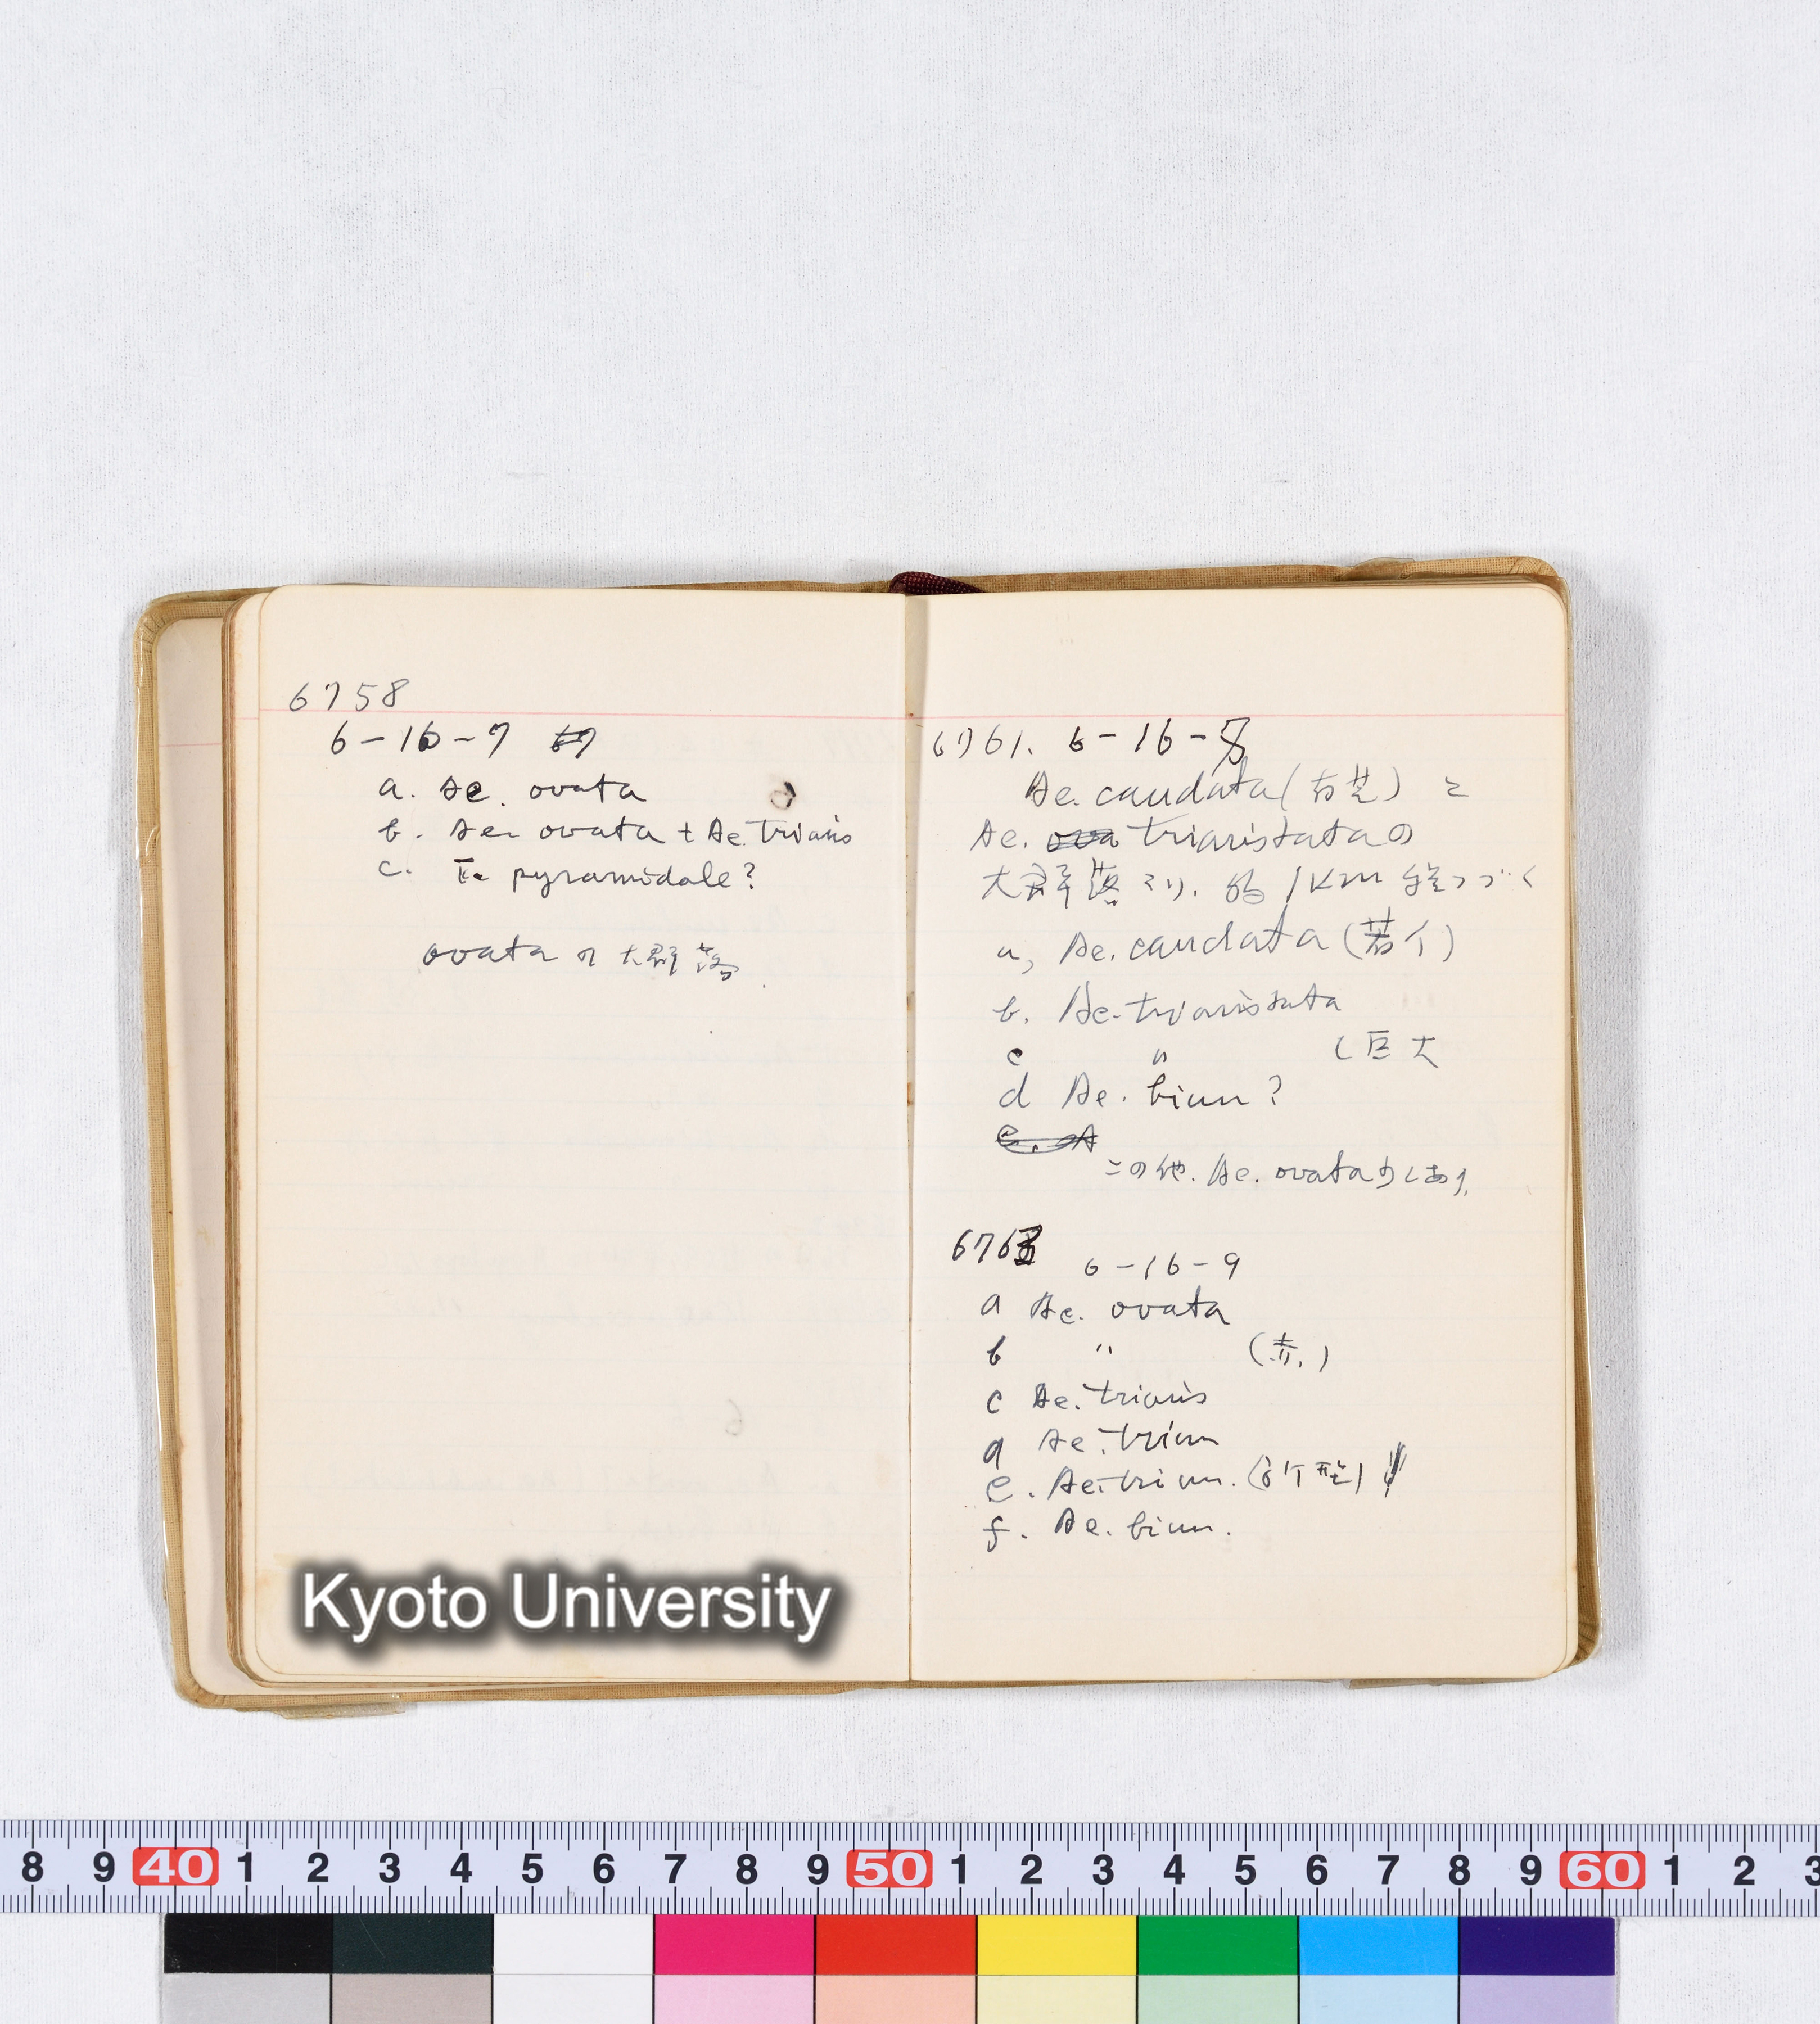 6758
6-16-7
a. Ae. ovata
b. Ae. ovata + Ae. triaris
c. T. pyramidale?
ovata の大群落.
6761. 6-16-8
Ae. caudata ( ) と
Ae. triaristataの
大群落あり. 約 1Km 続つづく
a, Ae. caudata (若干)
b. Ae. triaristata
c 〃 (巨大
d Ae. biun?
この他. Ae. ovata少しあり.
6763 6-16-9
a Ae. ovata
b 〃 (赤.)
c Ae. triaris
d Ae. triun
e. Ae. triun. ( 型)
f. Ae. biun.
Kyoto University
8 9 40 1 2 3 4 5 6 7 8 9 50 1 2 3 4 5 6 7 8 9 60 1 2 3